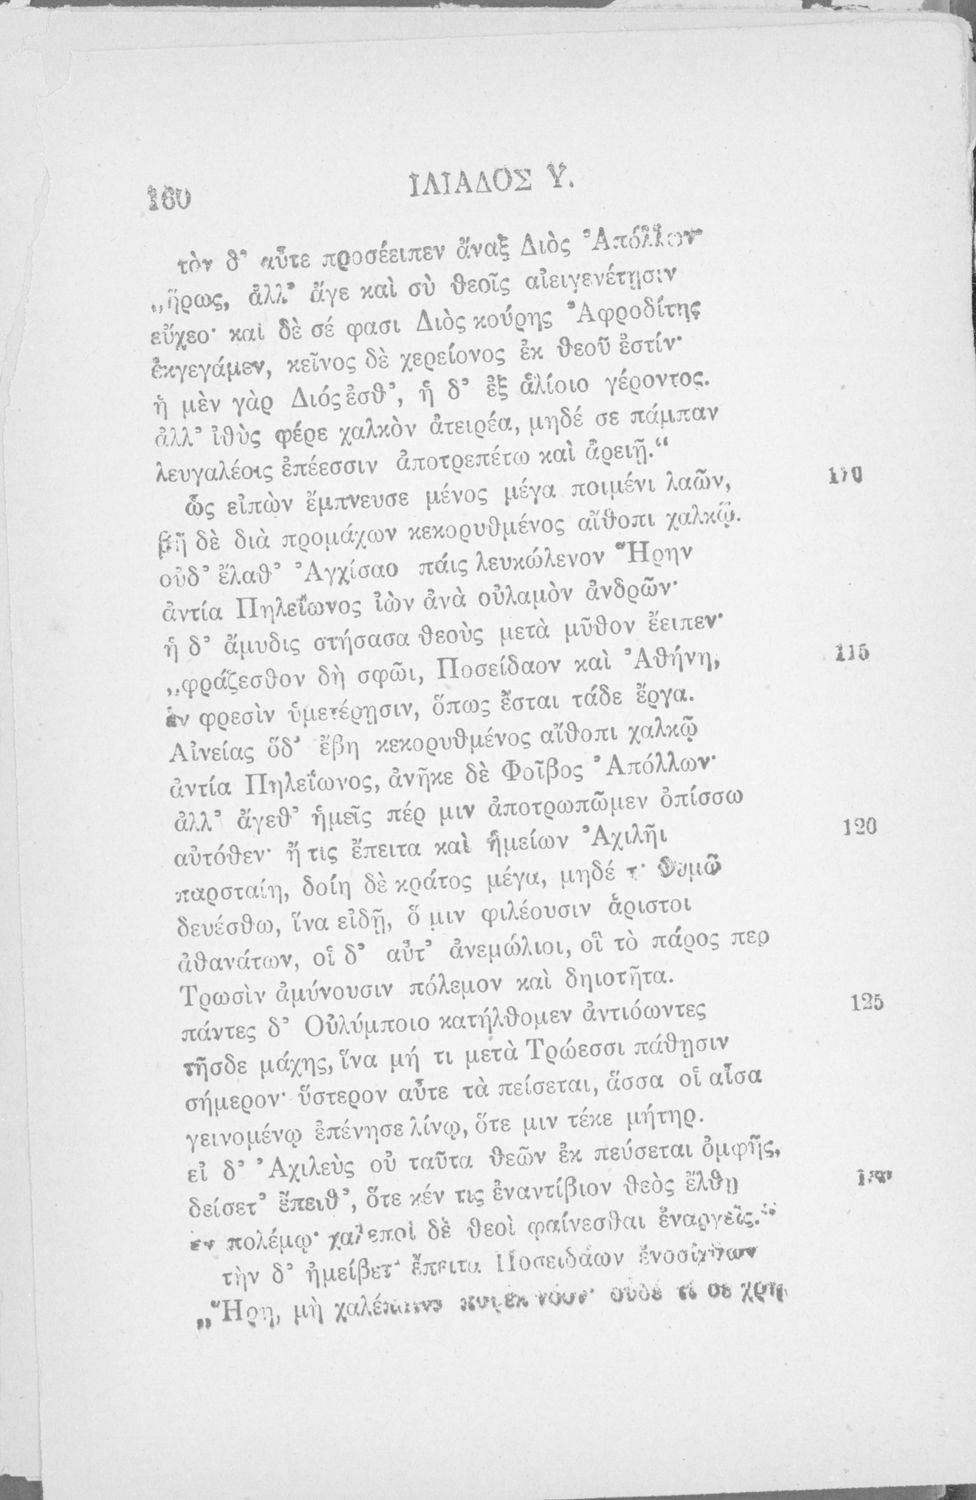 160
ΙΛΙΑΔΟΣ Υ.
τὸν δ᾽ αὖτε προσέειπεν ἄναξ Διὸς Ἀπόλλων
„ἥρως, ἀλλ᾽ ἄγε καὶ σὺ θεοῖς αἰειγενέτῃσιν
εὔχεο· καὶ δὲ σέ φασι Διὸς κούρης Ἀφροδίτης
ἐκγεγάμεν, κεῖνος δὲ χερείονος ἐκ θεοῦ ἐστίν·
ἡ μὲν γὰρ Διός ἐσθ᾽, ἡ δ᾽ ἐξ ἁλίοιο γέροντος.
ἀλλ᾽ ἰθὺς φέρε χαλκὸν ἀτειρέα, μηδέ σε πάμπαν
λευγαλέοις ἐπέεσσιν ἀποτρεπέτω καὶ ἀρειῇ.“
ὣς εἰπὼν ἔμπνευσε μένος μέγα ποιμένι λαῶν, 110
βῆ δὲ διὰ προμάχων κεκορυθμένος αἴθοπι χαλκῷ.
οὐδ᾽ ἔλαθ᾽ Ἀγχίσαο πάις λευκώλενον Ἥρην
ἀντία Πηλεΐωνος ἰὼν ἀνὰ οὐλαμὸν ἀνδρῶν·
ἡ δ᾽ ἄμυδις στήσασα θεοὺς μετὰ μῦθον ἔειπεν·
„φράζεσθον δὴ σφῶι, Ποσείδαον καὶ Ἀθήνη, 115
ἐν φρεσὶν ὑμετέρῃσιν, ὅπως ἔσται τάδε ἔργα.
Αἰνείας ὅδ᾽ ἔβη κεκορυθμένος αἴθοπι χαλκῷ
ἀντία Πηλεΐωνος, ἀνῆκε δὲ Φοῖβος Ἀπόλλων·
ἀλλ᾽ ἄγεθ᾽ ἡμεῖς πέρ μιν ἀποτρωπῶμεν ὀπίσσω
αὐτόθεν· ἤ τις ἔπειτα καὶ ἡμείων Ἀχιλῆι 120
παρσταίη, δοίη δὲ κράτος μέγα, μηδέ τι θυμῷ
δευέσθω, ἵνα εἰδῇ, ὅ μιν φιλέουσιν ἄριστοι
ἀθανάτων, οἱ δ᾽ αὖτ᾽ ἀνεμώλιοι, οἳ τὸ πάρος περ
Τρωσὶν ἀμύνουσιν πόλεμον καὶ δηιοτῆτα.
πάντες δ᾽ Οὐλύμποιο κατήλθομεν ἀντιόωντες 125
τῆσδε μάχης, ἵνα μή τι μετὰ Τρώεσσι πάθῃσιν
σήμερον· ὕστερον αὖτε τὰ πείσεται, ἅσσα οἱ αἶσα
γεινομένῳ ἐπένησε λίνῳ, ὅτε μιν τέκε μήτηρ.
εἰ δ᾽ Ἀχιλεὺς οὐ ταῦτα θεῶν ἐκ πεύσεται ὀμφῆς,
δείσετ᾽ ἔπειθ᾽, ὅτε κέν τις ἐναντίβιον θεὸς ἔλθῃ 130
ἐν πολέμῳ· χαλεποὶ δὲ θεοὶ φαίνεσθαι ἐναργεῖς.“
τὴν δ᾽ ἠμείβετ᾽ ἔπειτα Ποσειδάων ἐνοσίχθων
„Ἥρη, μὴ χαλέπαινε παρὲκ νόον· οὐδέ τί σε χρή,